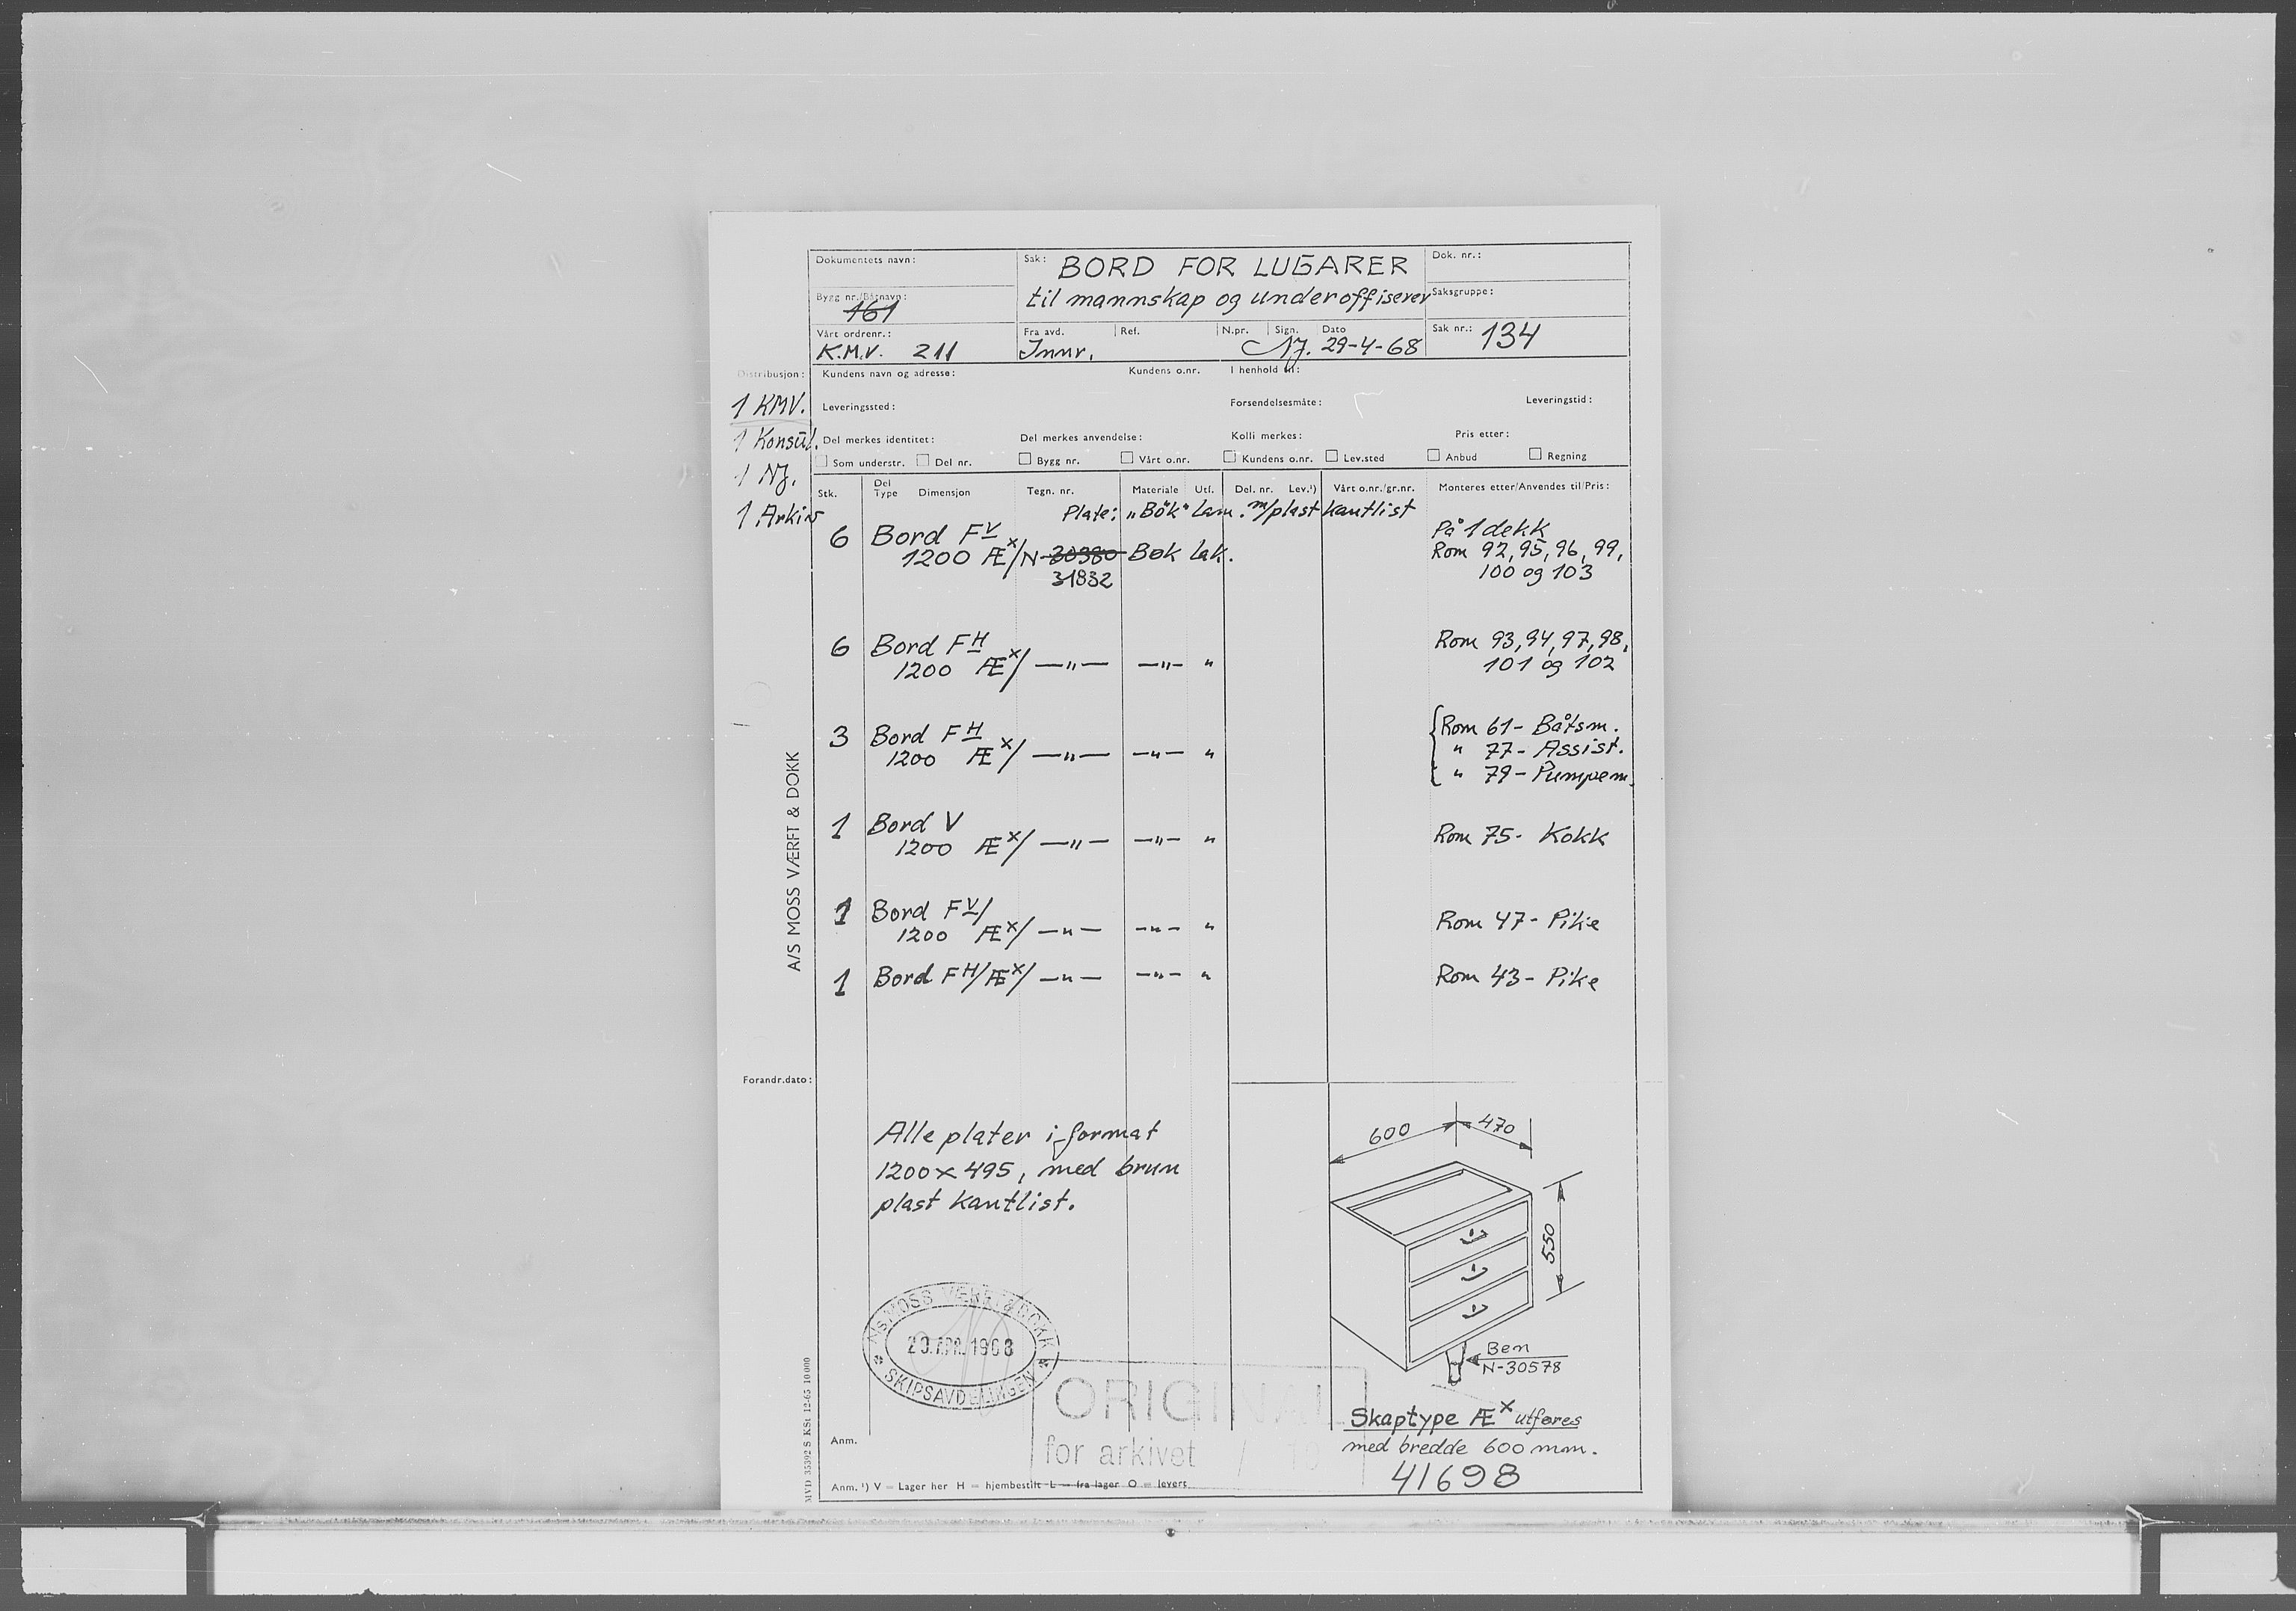 Dokumentets navn:
Sak: BORD FOR LUGARER
Dok. nr.:
Bygg nr./Båtnavn:
161
til mannskap og underoffiserer
Saksgruppe:
Vårt ordrenr.:
K.M.V. 211
Fra avd. Ref. N.pr. Sign. Dato
Innr. NJ. 29-4-68
Sak nr.: 134
Distribusjon:
Kundens navn og adresse: Kundens o.nr. I henhold til:
1 KMV.
Leveringssted: Forsendelsesmåte: Leveringstid:
1 Konsul.
Del merkes identitet: Del merkes anvendelse: Kolli merkes: Pris etter:
Som understr. Del nr. Bygg nr. Vårt o.nr. Kundens o.nr. Lev.sted Anbud Regning
1 NJ.
Stk. Del Type Dimensjon Tegn. nr. Materiale Utf. Del. nr. Lev.¹) Vårt o.nr./gr.nr. Monteres etter/Anvendes til/Pris:
1 Arkiv
Plate: „Bøk" Lam. m/plast kantlist
6 Bord FV På 1 dekk
1200 Æx/ N-30380 Bøk lak. Rom 92, 95, 96, 99,
31832 100 og 103
6 Bord FH Rom 93, 94, 97, 98,
1200 Æx/ —„— —„— „ 101 og 102
3 Bord FH Rom 61- Båtsm.
1200 Æx/ —„— —„— „ „ 77- Assist.
„ 79- Pumpem.
1 Bord V
1200 Æx/ —„— —„— „ Rom 75- Kokk
1 Bord FV/
1200 Æx/ —„— —„— „ Rom 47- Pike
1 Bord FH/Æx/ —„— —„— „ Rom 43- Pike
A/S MOSS VÆRFT & DOKK
Forandr.dato:
Alle plater i format
1200x495, med brun
plast kantlist.
600 470
550
Ben
N-30578
A/S MOSS VÆRFT & DOKK
29.APR.1968
SKIPSAVDELINGEN
ORIGINAL
for arkivet / 19
Skaptype Æx utføres
med bredde 600 mm.
41698
Anm.
Anm. ¹) V = Lager her H = hjembestilt L = fra lager O = levert
MVD 35392 S KSt 12-65 10000